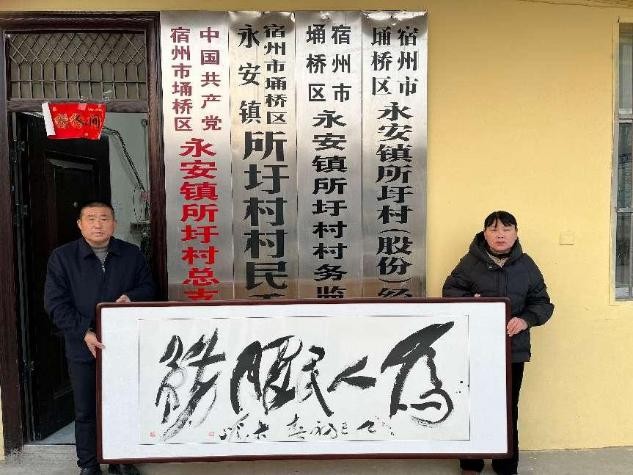 中国共产党
宿州市埇桥区
永安镇所圩村总支
宿州市埇桥区
永安镇
所圩村村民委
宿州市
埇桥区
永安镇所圩村村务监
宿州市
埇桥区
永安镇所圩村(股份)经
为人民服务